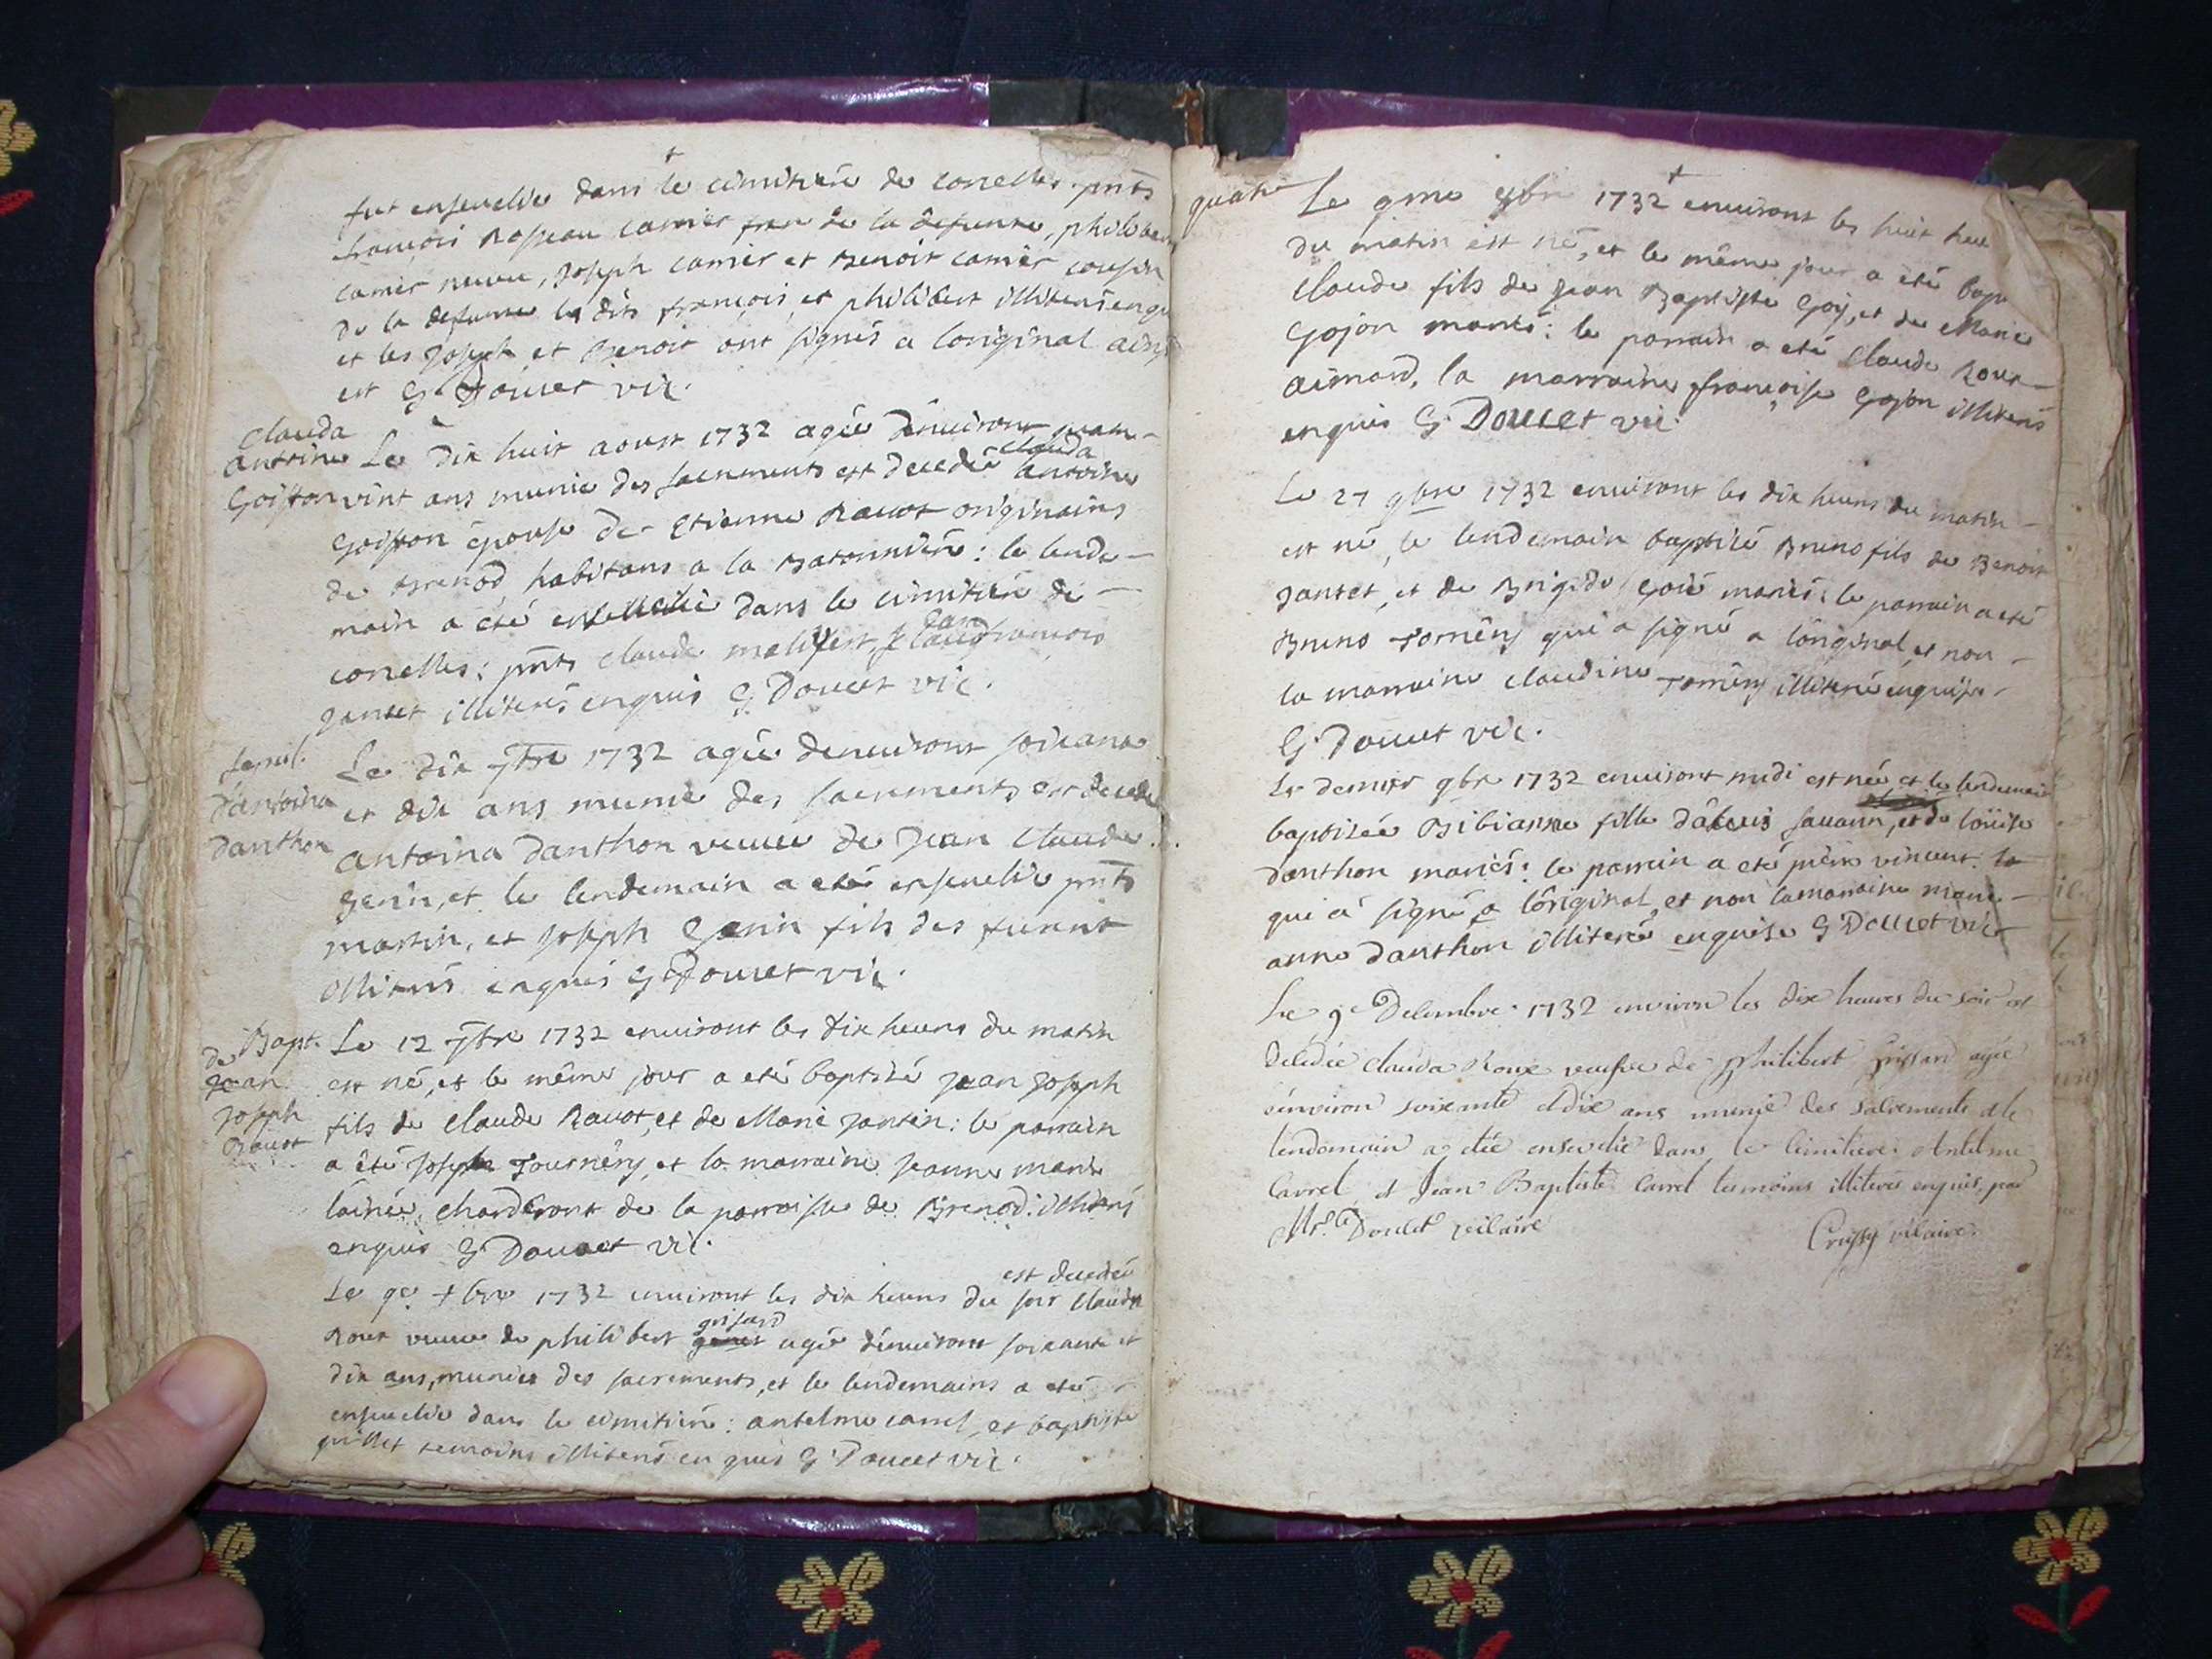 fut ensevelie dans le cimitiere de corcelles. pnts
françois Rosseau carrier frere de la defunte, philiber
carrier neveu, Joseph carrier et Benoit carrier cousin
de la defunte les dits françois, et philibert illiterés enqu
et les Joseph et Benoit ont signés a loriginal ainsi
est G. Doucet vic.
clauda
antoine
Goiffon
Le dix huit aoust 1732 agée denviront quatre-
vint ans munie des sacrements est decedée clauda antoine
Goiffon épouse de Etienne Ravot originaires
de Brenod, habitans a la Batonniere: le lende-
main a été ensevelie dans le cimitiere de
corcelles: pnts claude malifert, Jean françois
Jantet illiterés enquis G. Doucet vic.
sepul.
d'antoina
Danthon
Le dix 7bre 1732 agée denviront soixante
et dix ans munie des sacrements est decedée
antoina Danthon veuve de Jean Claude
Genin, et le lendemain a eté ensevelie pnts
martin, et Joseph Genin fils des furent
illiterés enquis G. Doucet vic.
Bapt.
de Jean
Joseph
Ravot
Le 12 7bre 1732 environt les dix heures du matin
est né, et le même jour a eté baptisé Jean Joseph
fils de Claude Ravot, et de Marie Jantin: le parrain
a été Joseph Tournéry, et la marraine Jeanne marie
lainée, charderont de la parroisse de Brenod: illiterés
enquis G. Doucet vic.
Le 9e Xbre 1732 environt les dix heures du soir est decedée Claude
Roux veuve de philibert grisard agée denviront soixante et
dix ans, munies des sacrements, et le lendemains a eté
ensevelie dans le cimitiere: antelme carrel, et baptiste
grillet temoins illiterés enquis G. Doucet vic.
quatre
Le 9bre 1732 environt les huit heu
du matin est né, et le même jour a été bapt
Claude fils de Jean Baptiste Goÿ, et de Marie
Gojon mariés: le parrain a eté Claude Roux-
aimard, la marraine françoise Gojon illiterés
enquis G. Doucet vic.
Le 27 9bre 1732 environt les dix heures du matin -
est né, le lendemain baptisé Bruno fils de Benoit
Jantet, et de Brigide Goié mariés: le parrain a eté
Bruno Tornéry qui a signé a lóriginal, et non -
la marraine claudine Tornéry illiterée enquise.
G. Doucet vic.
Le dernier 9bre 1732 environt midi est née et le lendemain
baptisée Bibianne fille dàlexis savarin, et de loüise
danthon mariés: le parrain a eté pierre vincent
qui a signé a lóriginal, et non la marraine marie-
anne Danthon illiterée enquise G. Doucet vic
Le 9e Decembre 1732 environ les dix heures du soir est
Decedée Clauda Roux veufve de Philibert Grissard agée
d'environ soixante et dix ans munie des Sacrements et le
lendemain a etée ensevelie dans le Cimitiere: Antelme
Carrel, et Jean Baptiste Carrel temoins illiteres enquis par
Mr. Doulcet vicaire
Crussy vicaire.